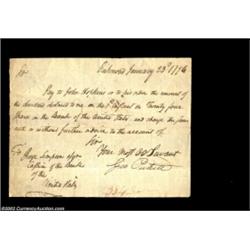 Sir Richmond January 23d 1796
Pay to John Hopkins or to his order the amount of
the dividend declared to me on the Instant on Twenty four
Shares in the Bank of the United States and charge the same
as is without further advice to the account of
Sir
Your most Servant
To
Simpson Esqr
Cashier of the Bank
of the
United States
©2003 Heritage Galleries & Auctioneers